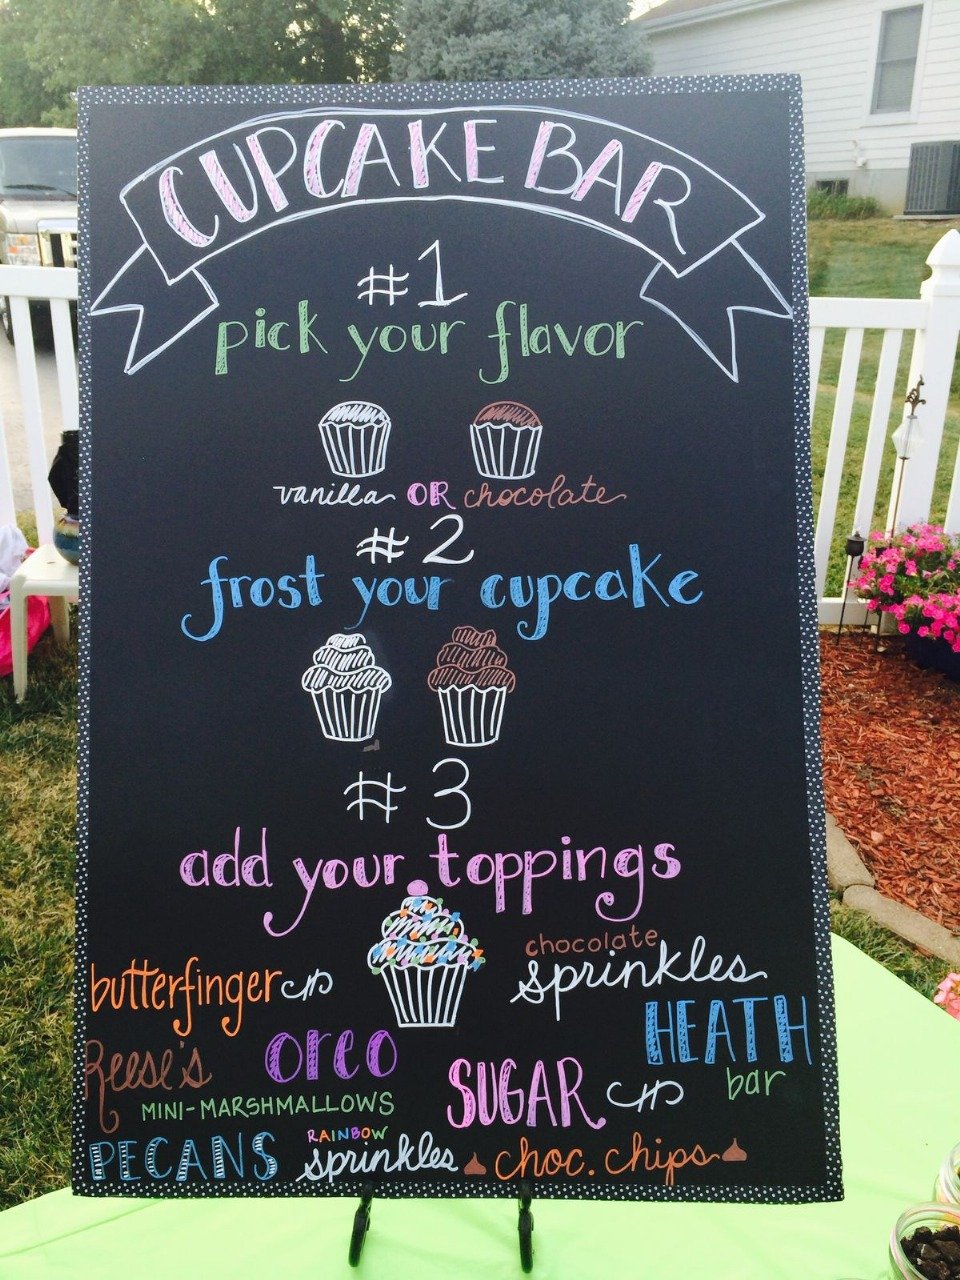 CUPCAKE BAR
#1
pick your flavor
vanilla OR chocolate
#2
frost your cupcake
#3
add your toppings
chocolate
sprinkles
butterfinger
HEATH
bar
Reese's
OREO
SUGAR
MINI-MARSHMALLOWS
PECANS
RAINBOW
sprinkles
choc. chips